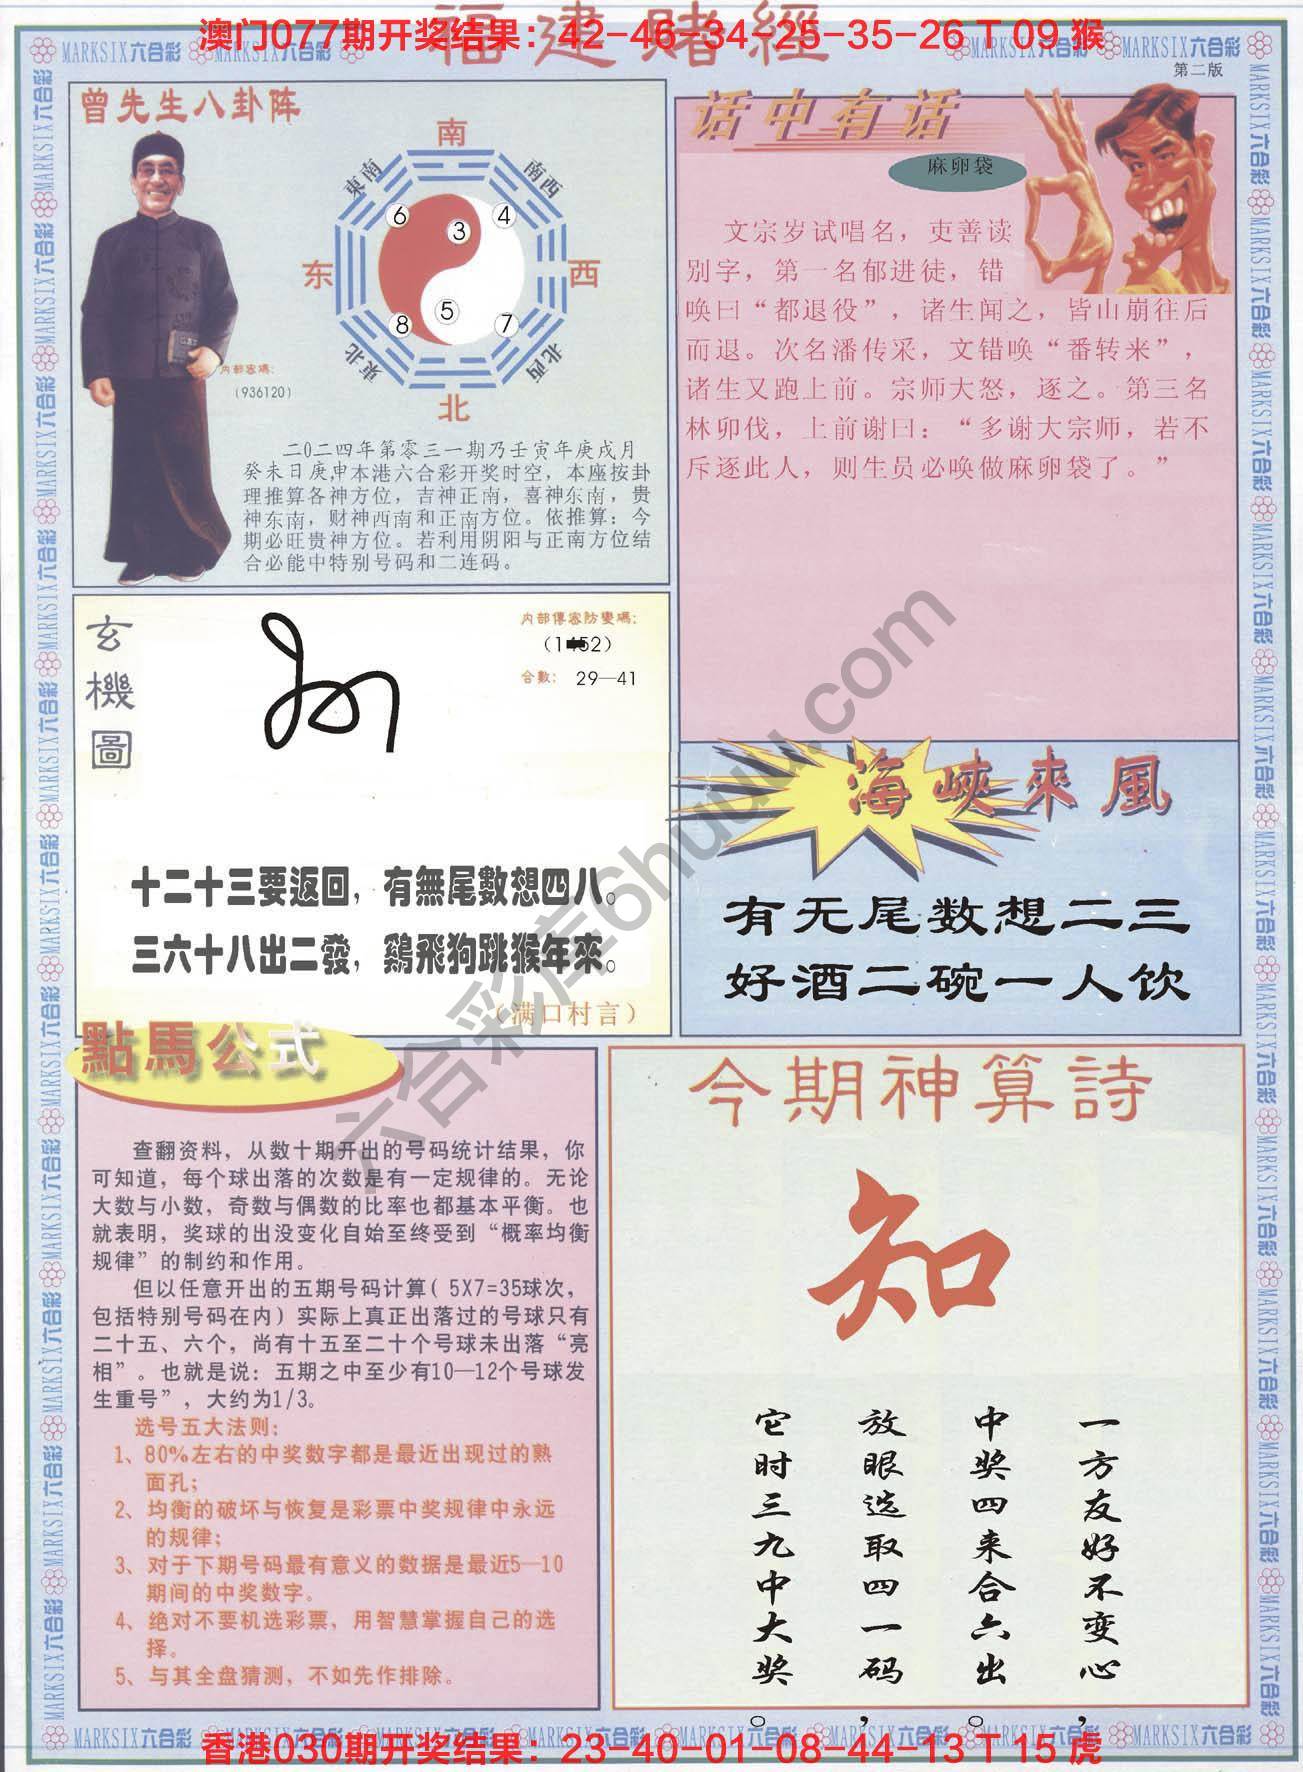 福建赌經
澳门077期开奖结果：42-46-34-25-35-26 T 09 猴
MARKSIX六合彩
第二版
曾先生八卦阵
南
東南
南西
6
3
4
东
西
5
8
7
東北
北西
北
内部密碼：
（936120）
二0二四年第零三一期乃壬寅年庚戌月
癸未日庚申本港六合彩开奖时空，本座按卦
理推算各神方位，吉神正南，喜神东南，贵
神东南，财神西南和正南方位。依推算：今
期必旺贵神方位。若利用阴阳与正南方位结
合必能中特别号码和二连码。
话中有话
麻卵袋
文宗岁试唱名，吏善读
别字，第一名郁进徒，错
唤曰“都退役”，诸生闻之，皆山崩往后
而退。次名潘传采，文错唤“番转来”，
诸生又跑上前。宗师大怒，逐之。第三名
林卯伐，上前谢曰：“多谢大宗师，若不
斥逐此人，则生员必唤做麻卵袋了。”
玄機圖
内部傳密防變碼：
合數： 29—41
十二十三要返回，有無尾數想四八。
三六十八出二發，鷄飛狗跳猴年來。
（满口村言）
海峽來風
有无尾数想二三
好酒二碗一人饮
點馬公式
查翻资料，从数十期开出的号码统计结果，你
可知道，每个球出落的次数是有一定规律的。无论
大数与小数，奇数与偶数的比率也都基本平衡。也
就表明，奖球的出没变化自始至终受到“概率均衡
规律”的制约和作用。
但以任意开出的五期号码计算( 5X7=35球次，
包括特别号码在内）实际上真正出落过的号球只有
二十五、六个，尚有十五至二十个号球未出落“亮
相”。也就是说：五期之中至少有10—12个号球发
生重号”，大约为1/3。
选号五大法则：
1、80%左右的中奖数字都是最近出现过的熟
面孔；
2、均衡的破坏与恢复是彩票中奖规律中永远
的规律；
3、对于下期号码最有意义的数据是最近5—10
期间的中奖数字。
4、绝对不要机选彩票，用智慧掌握自己的选
择。
5、与其全盘猜测，不如先作排除。
今期神算詩
知
一方友好不变心，
中奖四来合六出。
放眼选取四一码，
它时三九中大奖。
六合彩库6huuu.com
MARKSIX六合彩
香港030期开奖结果：23-40-01-08-44-13 T 15 虎